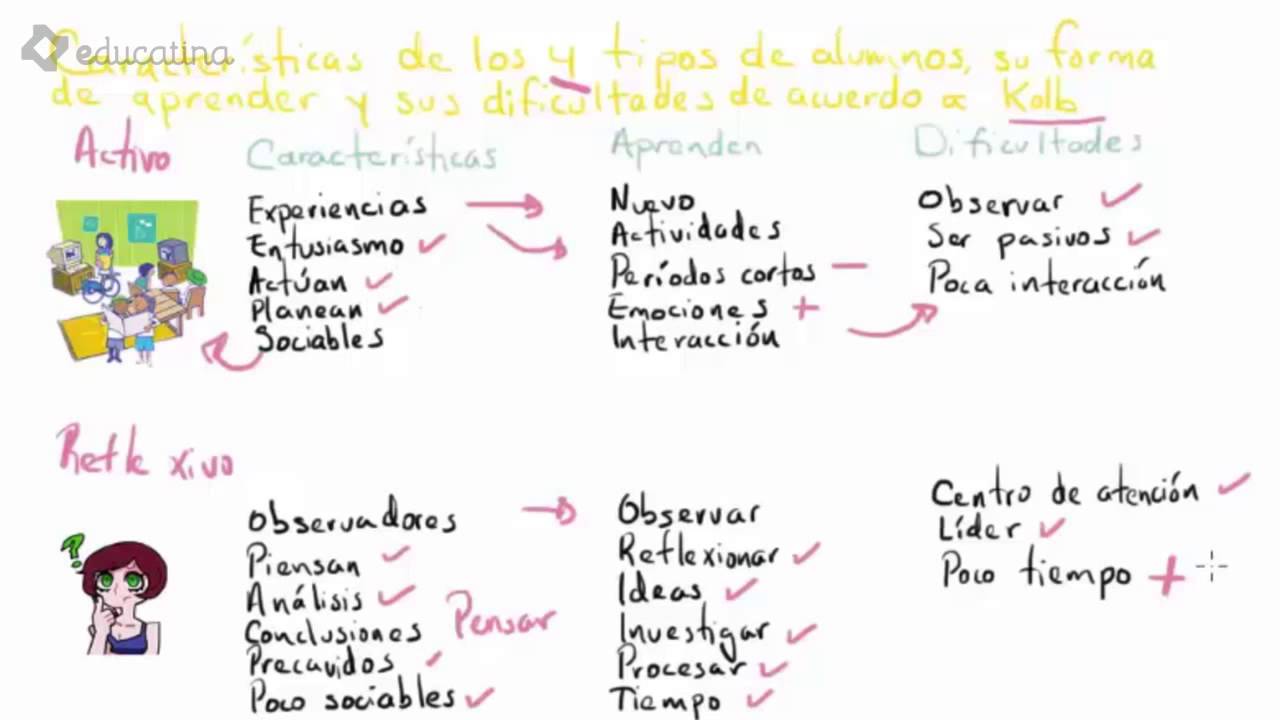 educatina
Características de los 4 tipos de alumnos, su forma
de aprender y sus dificultades de acuerdo a Kolb
Activo
Características
Experiencias
Entusiasmo
Actúan
Planean
Sociables
Aprenden
Nuevo
Actividades
Períodos cortos
Emociones +
Interacción
Dificultades
Observar
Ser pasivos
Poca interacción
Reflexivo
?
Observadores
Piensan
Análisis
Conclusiones
Precavidos
Poco sociables
Pensar
Observar
Reflexionar
Ideas
Investigar
Procesar
Tiempo
Centro de atención
Líder
Poco tiempo +